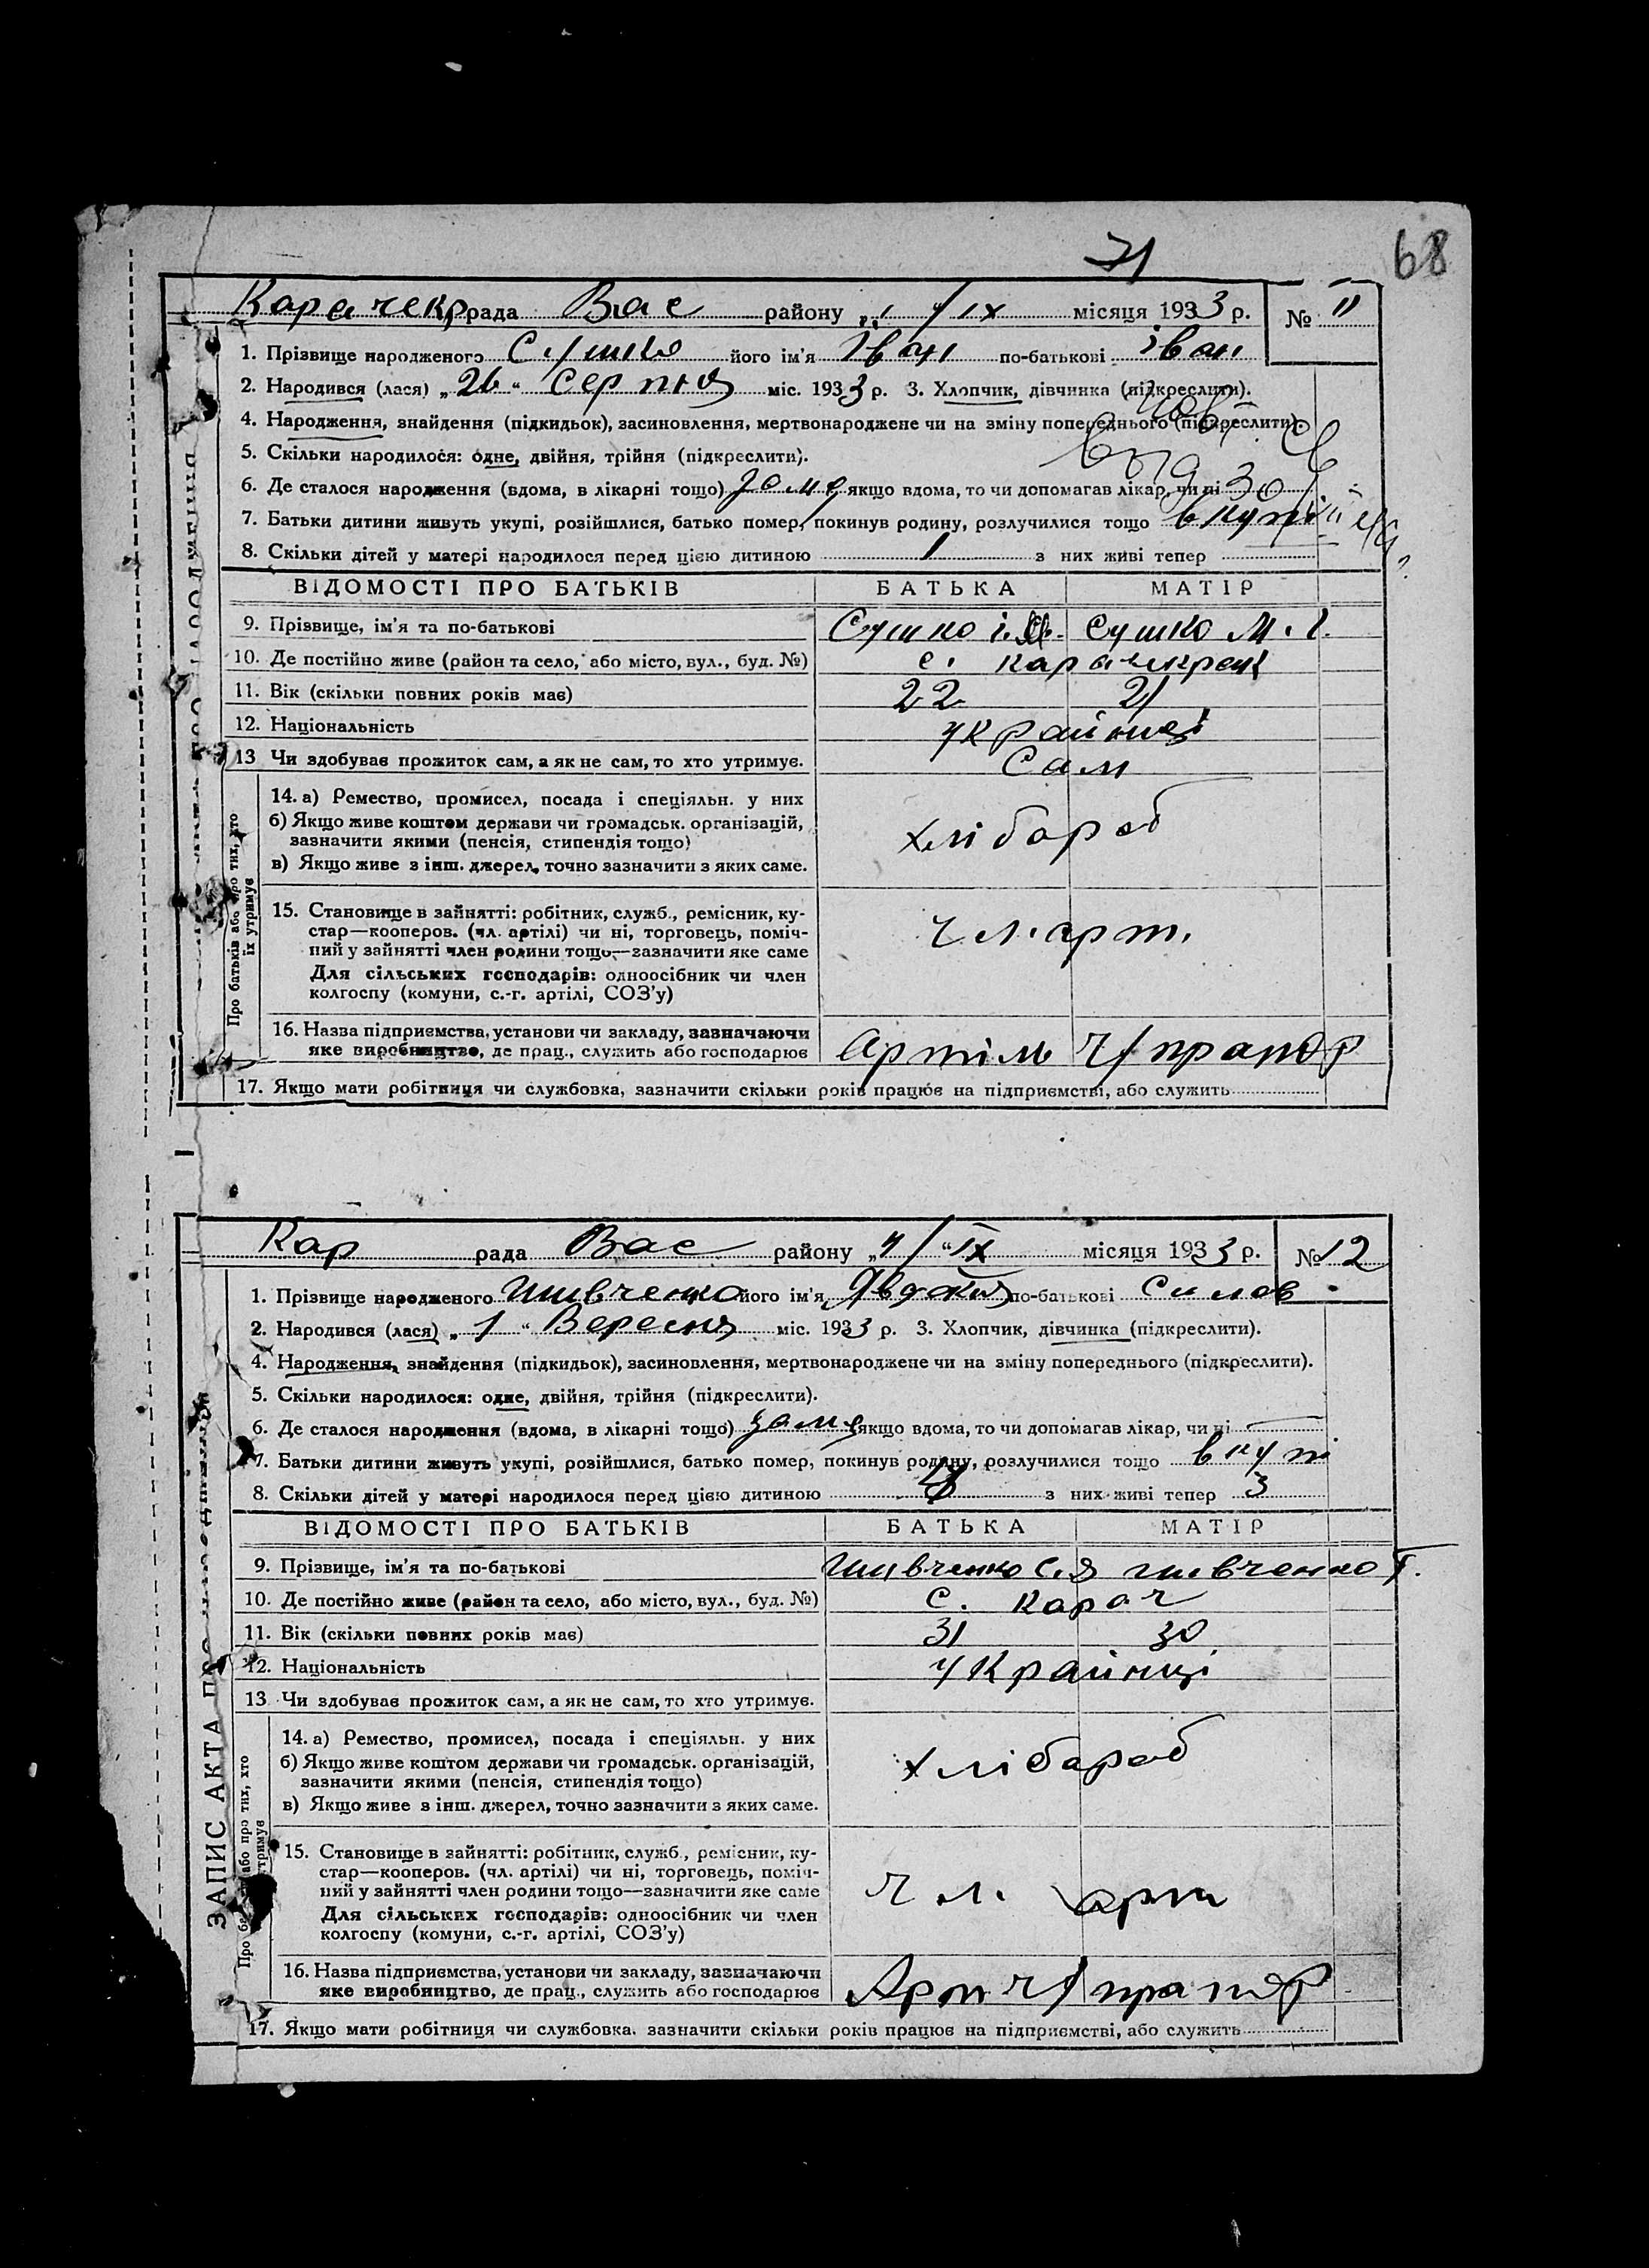 71
68
Карачекр рада Вас району „1 / IX місяця 1933 р. № 11
1. Прізвище народженого Сушко його ім'я Іван по-батькові Іван
2. Народився (лася) „26“ Серпня міс. 1933 р. 3. Хлопчик, дівчинка (підкреслити).
4. Народження, знайдення (підкидьок), засиновлення, мертвонароджене чи на зміну попереднього (підкреслити).
5. Скільки народилося: одне, двійня, трійня (підкреслити).
6. Де сталося народження (вдома, в лікарні тощо) якщо вдома, то чи допомагав лікар, чи ні
7. Батьки дитини живуть укупі, розійшлися, батько помер, покинув родину, розлучилися тощо вкупі
8. Скільки дітей у матері народилося перед цією дитиною 1 з них живі тепер
ВІДОМОСТІ ПРО БАТЬКІВ БАТЬКА МАТІР
9. Прізвище, ім'я та по-батькові Сушко І. Сушко М. І.
10. Де постійно живе (район та село, або місто, вул., буд. №) с. Карачекрак
11. Вік (скільки повних років має) 22 21
12. Національність українці
13 Чи здобуває прожиток сам, а як не сам, то хто утримує. Сам
Про батьків або про тих, хто їх утримує
14. а) Ремество, промисел, посада і спеціяльн. у них
б) Якщо живе коштом держави чи громадськ. організацій,
зазначити якими (пенсія, стипендія тощо) хлібороб
в) Якщо живе з інш. джерел, точно зазначити з яких саме.
15. Становище в зайнятті: робітник, служб., ремісник, ку-
стар—кооперов. (чл. артілі) чи ні, торговець, поміч-
ний у зайнятті член родини тощо—зазначити яке саме чл. арт.
Для сільських господарів: одноосібник чи член
колгоспу (комуни, с.-г. артілі, СОЗ'у)
16. Назва підприємства, установи чи закладу, зазначаючи
яке виробництво, де прац., служить або господарює Артіль Ч/прапор
17. Якщо мати робітниця чи службовка, зазначити скільки років працює на підприємстві, або служить
Кар рада Вас району „4/“ IX місяця 1933 р. № 12
1. Прізвище народженого Шивченко його ім'я Явдокія по-батькові Силов
2. Народився (лася) „1“ Вересня міс. 1933 р. 3. Хлопчик, дівчинка (підкреслити).
4. Народження, знайдення (підкидьок), засиновлення, мертвонароджене чи на зміну попереднього (підкреслити).
5. Скільки народилося: одне, двійня, трійня (підкреслити).
6. Де сталося народження (вдома, в лікарні тощо) якщо вдома, то чи допомагав лікар, чи ні
7. Батьки дитини живуть укупі, розійшлися, батько помер, покинув родину, розлучилися тощо вкупі
8. Скільки дітей у матері народилося перед цією дитиною з них живі тепер 3
ВІДОМОСТІ ПРО БАТЬКІВ БАТЬКА МАТІР
9. Прізвище, ім'я та по-батькові Шивченко С.Я Шивченко Т.
10. Де постійно живе (район та село, або місто, вул., буд. №) с. Карач
11. Вік (скільки повних років має) 31 30
12. Національність українці
13 Чи здобуває прожиток сам, а як не сам, то хто утримує.
ЗАПИС АКТА ПРО
14. а) Ремество, промисел, посада і спеціяльн. у них
б) Якщо живе коштом держави чи громадськ. організацій,
зазначити якими (пенсія, стипендія тощо) хлібороб
в) Якщо живе з інш. джерел, точно зазначити з яких саме.
15. Становище в зайнятті: робітник, служб., ремісник, ку-
стар—кооперов. (чл. артілі) чи ні, торговець, поміч-
ний у зайнятті член родини тощо—зазначити яке саме чл. арт
Для сільських господарів: одноосібник чи член
колгоспу (комуни, с.-г. артілі, СОЗ'у)
16. Назва підприємства, установи чи закладу, зазначаючи
яке виробництво, де прац., служить або господарює Арт Ч/прапор
17. Якщо мати робітниця чи службовка. зазначити скільки років працює на підприємстві, або служить